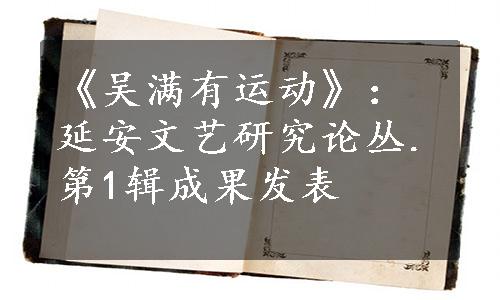 《吴满有运动》：
延安文艺研究论丛.
第1辑成果发表